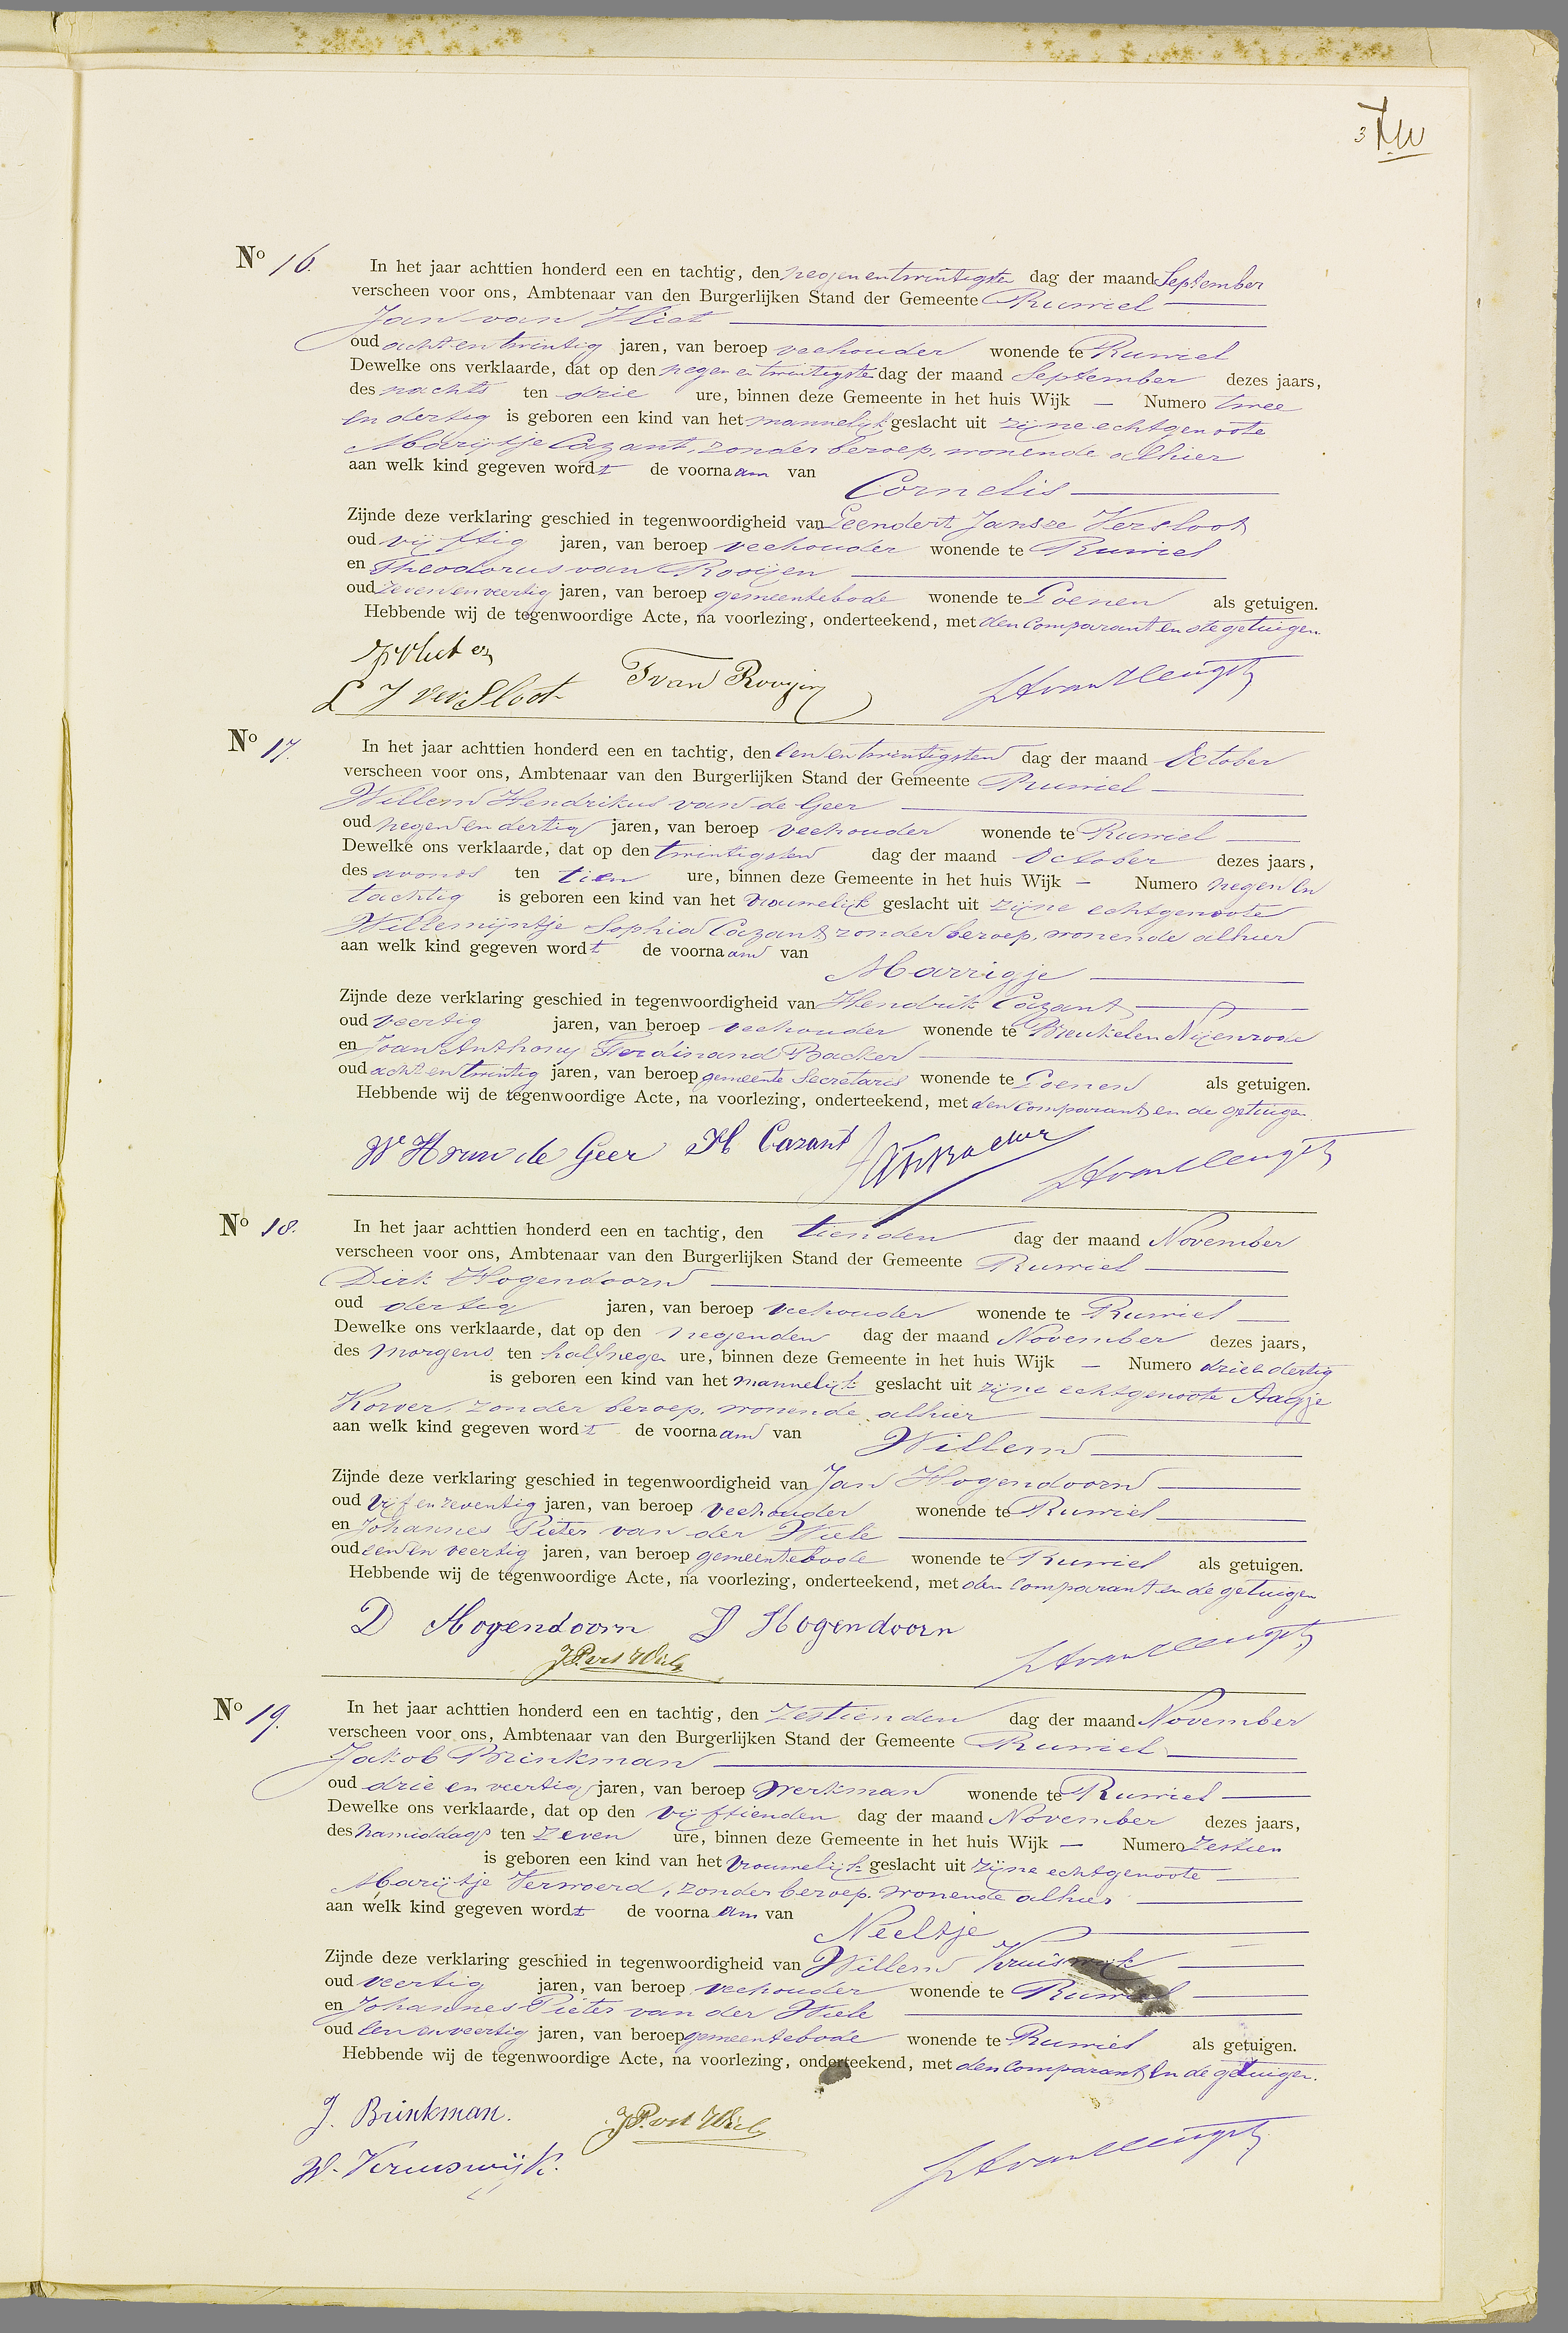 3
No 16. In het jaar achttien honderd een en tachtig, den negen en twintigsten dag der maand September
verscheen voor ons, Ambtenaar van den Burgerlijken Stand der Gemeente Ruwiel
Jan van Vliet
oud acht en twintig jaren, van beroep veehouder wonende te Ruwiel
Dewelke ons verklaarde, dat op den negen en twintigste dag der maand September dezes jaars,
des nachts ten drie ure, binnen deze Gemeente in het huis Wijk — Numero twee
en dertig is geboren een kind van het mannelijk geslacht uit zijne echtgenoote
Marijtje Cazant, zonder beroep, wonende alhier
aan welk kind gegeven wordt de voornaam van
Cornelis
Zijnde deze verklaring geschied in tegenwoordigheid van Leendert Jansze Versloot
oud vijftig jaren, van beroep veehouder wonende te Ruwiel
en Theodorus van Rooijen
oud zeven en veertig jaren, van beroep gemeentebode wonende te Loenen als getuigen.
Hebbende wij de tegenwoordige Acte, na voorlezing, onderteekend, met den comparant en de getuigen.
L J versloot T van Rooyen
No 17. In het jaar achttien honderd een en tachtig, den een en twintigsten dag der maand October
verscheen voor ons, Ambtenaar van den Burgerlijken Stand der Gemeente Ruwiel
Willem Hendrikus van de Geer
oud negen en dertig jaren, van beroep veehouder wonende te Ruwiel
Dewelke ons verklaarde, dat op den twintigsten dag der maand October dezes jaars,
des avonds ten tien ure, binnen deze Gemeente in het huis Wijk — Numero negen en
tachtig is geboren een kind van het vrouwelijk geslacht uit zijne echtgenoote
Willemijntje Sophia Cazant, zonder beroep, wonende alhier
aan welk kind gegeven wordt de voornaam van
Marrigje
Zijnde deze verklaring geschied in tegenwoordigheid van Hendrik Cazant
oud veertig jaren, van beroep veehouder wonende te Breukelen Nijenrode
en Joan Anthony Ferdinand Backer
oud acht en twintig jaren, van beroep gemeente Secretaris wonende te Loenen als getuigen.
Hebbende wij de tegenwoordige Acte, na voorlezing, onderteekend, met den comparant en de getuigen
W H van de Geer H Cazant
No 18. In het jaar achttien honderd een en tachtig, den tienden dag der maand November
verscheen voor ons, Ambtenaar van den Burgerlijken Stand der Gemeente Ruwiel
Dirk Hogendoorn
oud dertig jaren, van beroep veehouder wonende te Ruwiel
Dewelke ons verklaarde, dat op den negenden dag der maand November dezes jaars,
des morgens ten half negen ure, binnen deze Gemeente in het huis Wijk — Numero drie e dertig
is geboren een kind van het mannelijk geslacht uit zijne echtgenoote Aagje
Korver, zonder beroep, wonende alhier
aan welk kind gegeven wordt de voornaam van
Willem
Zijnde deze verklaring geschied in tegenwoordigheid van Jan Hogendoorn
oud vijf en zeventig jaren, van beroep veehouder wonende te Ruwiel
en Johannes Pieter van der Wiele
oud een en veertig jaren, van beroep gemeentebode wonende te Ruwiel als getuigen.
Hebbende wij de tegenwoordige Acte, na voorlezing, onderteekend, met den comparant en de getuigen
D Hogendoorn J Hogendoorn
No 19. In het jaar achttien honderd een en tachtig, den zestienden dag der maand November
verscheen voor ons, Ambtenaar van den Burgerlijken Stand der Gemeente Ruwiel
Jakob Brinkman
oud drie en veertig jaren, van beroep werkman wonende te Ruwiel
Dewelke ons verklaarde, dat op den vijftienden dag der maand November dezes jaars,
des namiddags ten zeven ure, binnen deze Gemeente in het huis Wijk — Numero zestien
is geboren een kind van het vrouwelijk geslacht uit zijne echtgenoote
Marijtje Verwoerd, zonder beroep, wonende alhier
aan welk kind gegeven wordt de voornaam van
Neeltje
Zijnde deze verklaring geschied in tegenwoordigheid van Willem Kruiswijk
oud veertig jaren, van beroep veehouder wonende te Ruwiel
en Johannes Pieter van der Wiele
oud een en veertig jaren, van beroep gemeentebode wonende te Ruwiel als getuigen.
Hebbende wij de tegenwoordige Acte, na voorlezing, onderteekend, met den comparant en de getuigen.
J. Brinkman.
W. Kruiswijk.